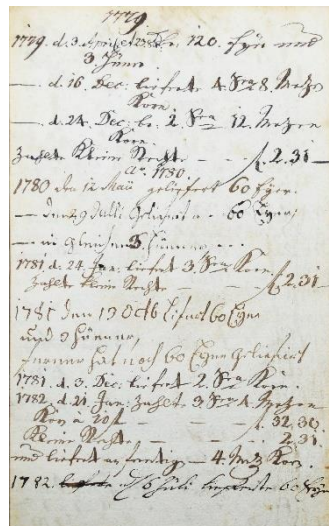 1779.
1779. d. 3. April et 120. Eyr und
3 Hüner.
— d. 16. Dec. liefert 4. Sra 8. Metzen
Korn.
— d. 24. Dec. 2. Sra 12. Metzen
Korn.
Zahlt kleine Rechte — — f. 2. 31 —
Ao. 1780.
1780 den 12 Maÿ geliefert 60 Eyer.
— den 29 Julli geliefert 60 Eyer,
— in gleichen 3. Hünner
1781 d. 24. Jan. liefert 3. Sra Korn.
Zahlt kleine Recht — f. 2. 31 —
1781 den 19 Octb lifert 60 Eyer
und 3 Hünner,
ferner hat noch 60 Eyer geliefert
1781. d. 3. Dec. liefert 2. Sra Korn.
1782. d. 21. Jan. Zahlt 3 Sra 4. Metzen
Korn à 10 f. — — f. 32. 30.
Kleine Rechte — — 2. 31.
und liefert — 4. Mz Korn.
1782. 6 Juli 60